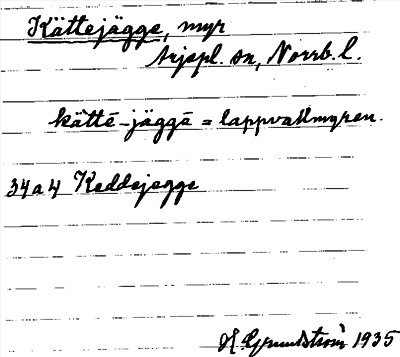 Kättejägge, myr
Arjepl. sn, Norrb. l.
kättē-jäggā = lappvallmyren.
34 a 4 Keddejegge
H. Grundström 1935